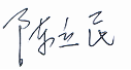 陈立民